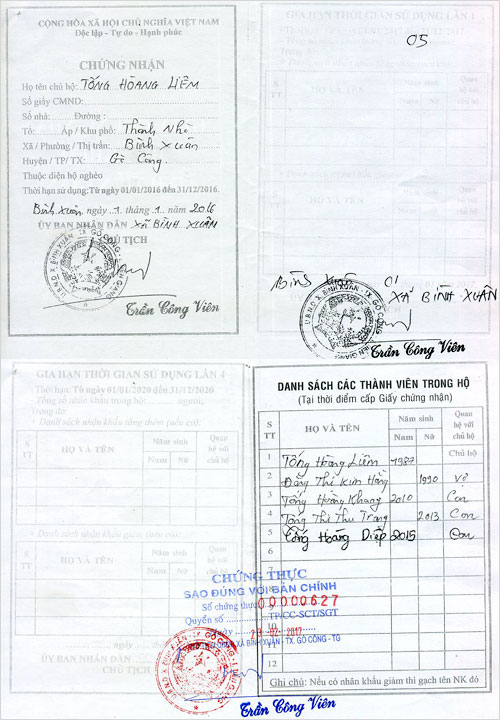 CỘNG HÒA XÃ HỘI CHỦ NGHĨA VIỆT NAM
Độc lập - Tự do - Hạnh phúc
CHỨNG NHẬN
Họ tên chủ hộ: TỐNG HOÀNG LIÊM
Số giấy CMND:
Số nhà: Đường :
Tổ: Ấp / Khu phố: Thành Nhì
Xã / Phường / Thị trấn: Bình Xuân
Huyện / TP/ TX: Gò Công.
Thuộc diện hộ nghèo
Thời hạn sử dụng: Từ ngày 01/01/2016 đến 31/12/2016.
Bình Xuân, ngày 1 tháng 1 năm 2016
ỦY BAN NHÂN DÂN XÃ BÌNH XUÂN
CHỦ TỊCH
Trần Công Viên
GIA HẠN THỜI GIAN SỬ DỤNG LẦN 1
05
S TT
HỌ VÀ TÊN
Năm sinh
Nam
Nữ
Quan hệ với chủ hộ
BÌNH XUÂN 01
XÃ BÌNH XUÂN
Trần Công Viên
GIA HẠN THỜI GIAN SỬ DỤNG LẦN 4
Thời hạn: Từ ngày 01/01/2020 đến 31/12/2020
Tổng số nhân khẩu trong hộ: người;
Trong đó:
- Danh sách nhân khẩu tăng thêm (nếu có):
S TT
HỌ VÀ TÊN
Năm sinh
Nam
Nữ
Quan hệ với chủ hộ
- Danh sách nhân khẩu giảm (nếu có):
S TT
HỌ VÀ TÊN
Năm sinh
Nam
Nữ
Quan hệ với chủ hộ
ỦY BAN NHÂN DÂN
DANH SÁCH CÁC THÀNH VIÊN TRONG HỘ
(Tại thời điểm cấp Giấy chứng nhận)
S TT
HỌ VÀ TÊN
Năm sinh
Nam
Nữ
Quan hệ với chủ hộ
1 Tống Hoàng Liêm 1987 Chủ hộ
2 Đặng Thị Kim Hằng 1990 Vợ
3 Tống Hoàng Khang 2010 Con
4 Tống Thị Thu Trang 2013 Con
5 Tống Hoàng Diệp 2015 Con
6
7
8
9
10
11
12
CHỨNG THỰC
SAO ĐÚNG VỚI BẢN CHÍNH
Số chứng thực 00000627
Quyển số TP/CC-SCT/SGT
Ngày 02-2017
XÃ BÌNH XUÂN - TX. GÒ CÔNG - TG
Trần Công Viên
Ghi chú: Nếu có nhân khẩu giảm thì gạch tên NK đó